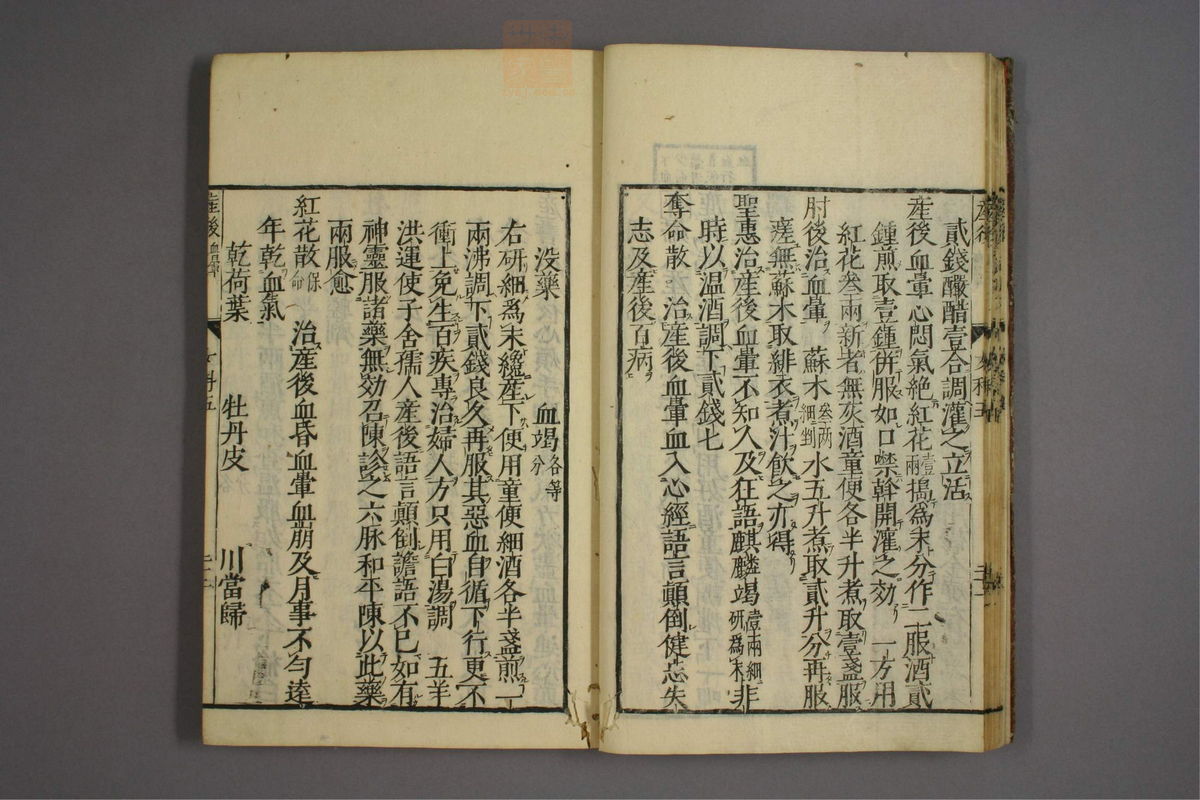 貳錢釅醋壹合調灌之立活
産後血暈心悶氣絶紅花壹兩搗爲末分作二服酒貳
鍾煎取壹鍾併服如口噤斡開灌之効 一方用
紅花叁兩新者無灰酒童便各半升煮取壹盞服
肘後治血暈 蘇木叁兩細剉水五升煮取貳升分再服
瘥無蘇木取緋衣煮汁飲之亦得
聖惠治産後血暈不知人及狂語麒麟竭壹兩細研爲末非
時以温酒調下貳錢七
奪命散 治産後血暈血入心經語言顛倒健忘失
志及産後百病
没藥 血竭各等分
右研細爲末纔産下便用童便細酒各半盞煎一
兩沸調下貳錢良久再服其惡血自循下行更不
衝上免生百疾專治婦人方只用白湯調 五羊
洪運使子舍孺人産後語言顛倒譫語不已如有
神靈服諸藥無効召陳診之六脉和平陳以此藥
兩服愈
紅花散保命 治産後血昏血暈血崩及月事不勻遠
年乾血氣
乾荷葉 牡丹皮 川當歸
産後血暈
女科五